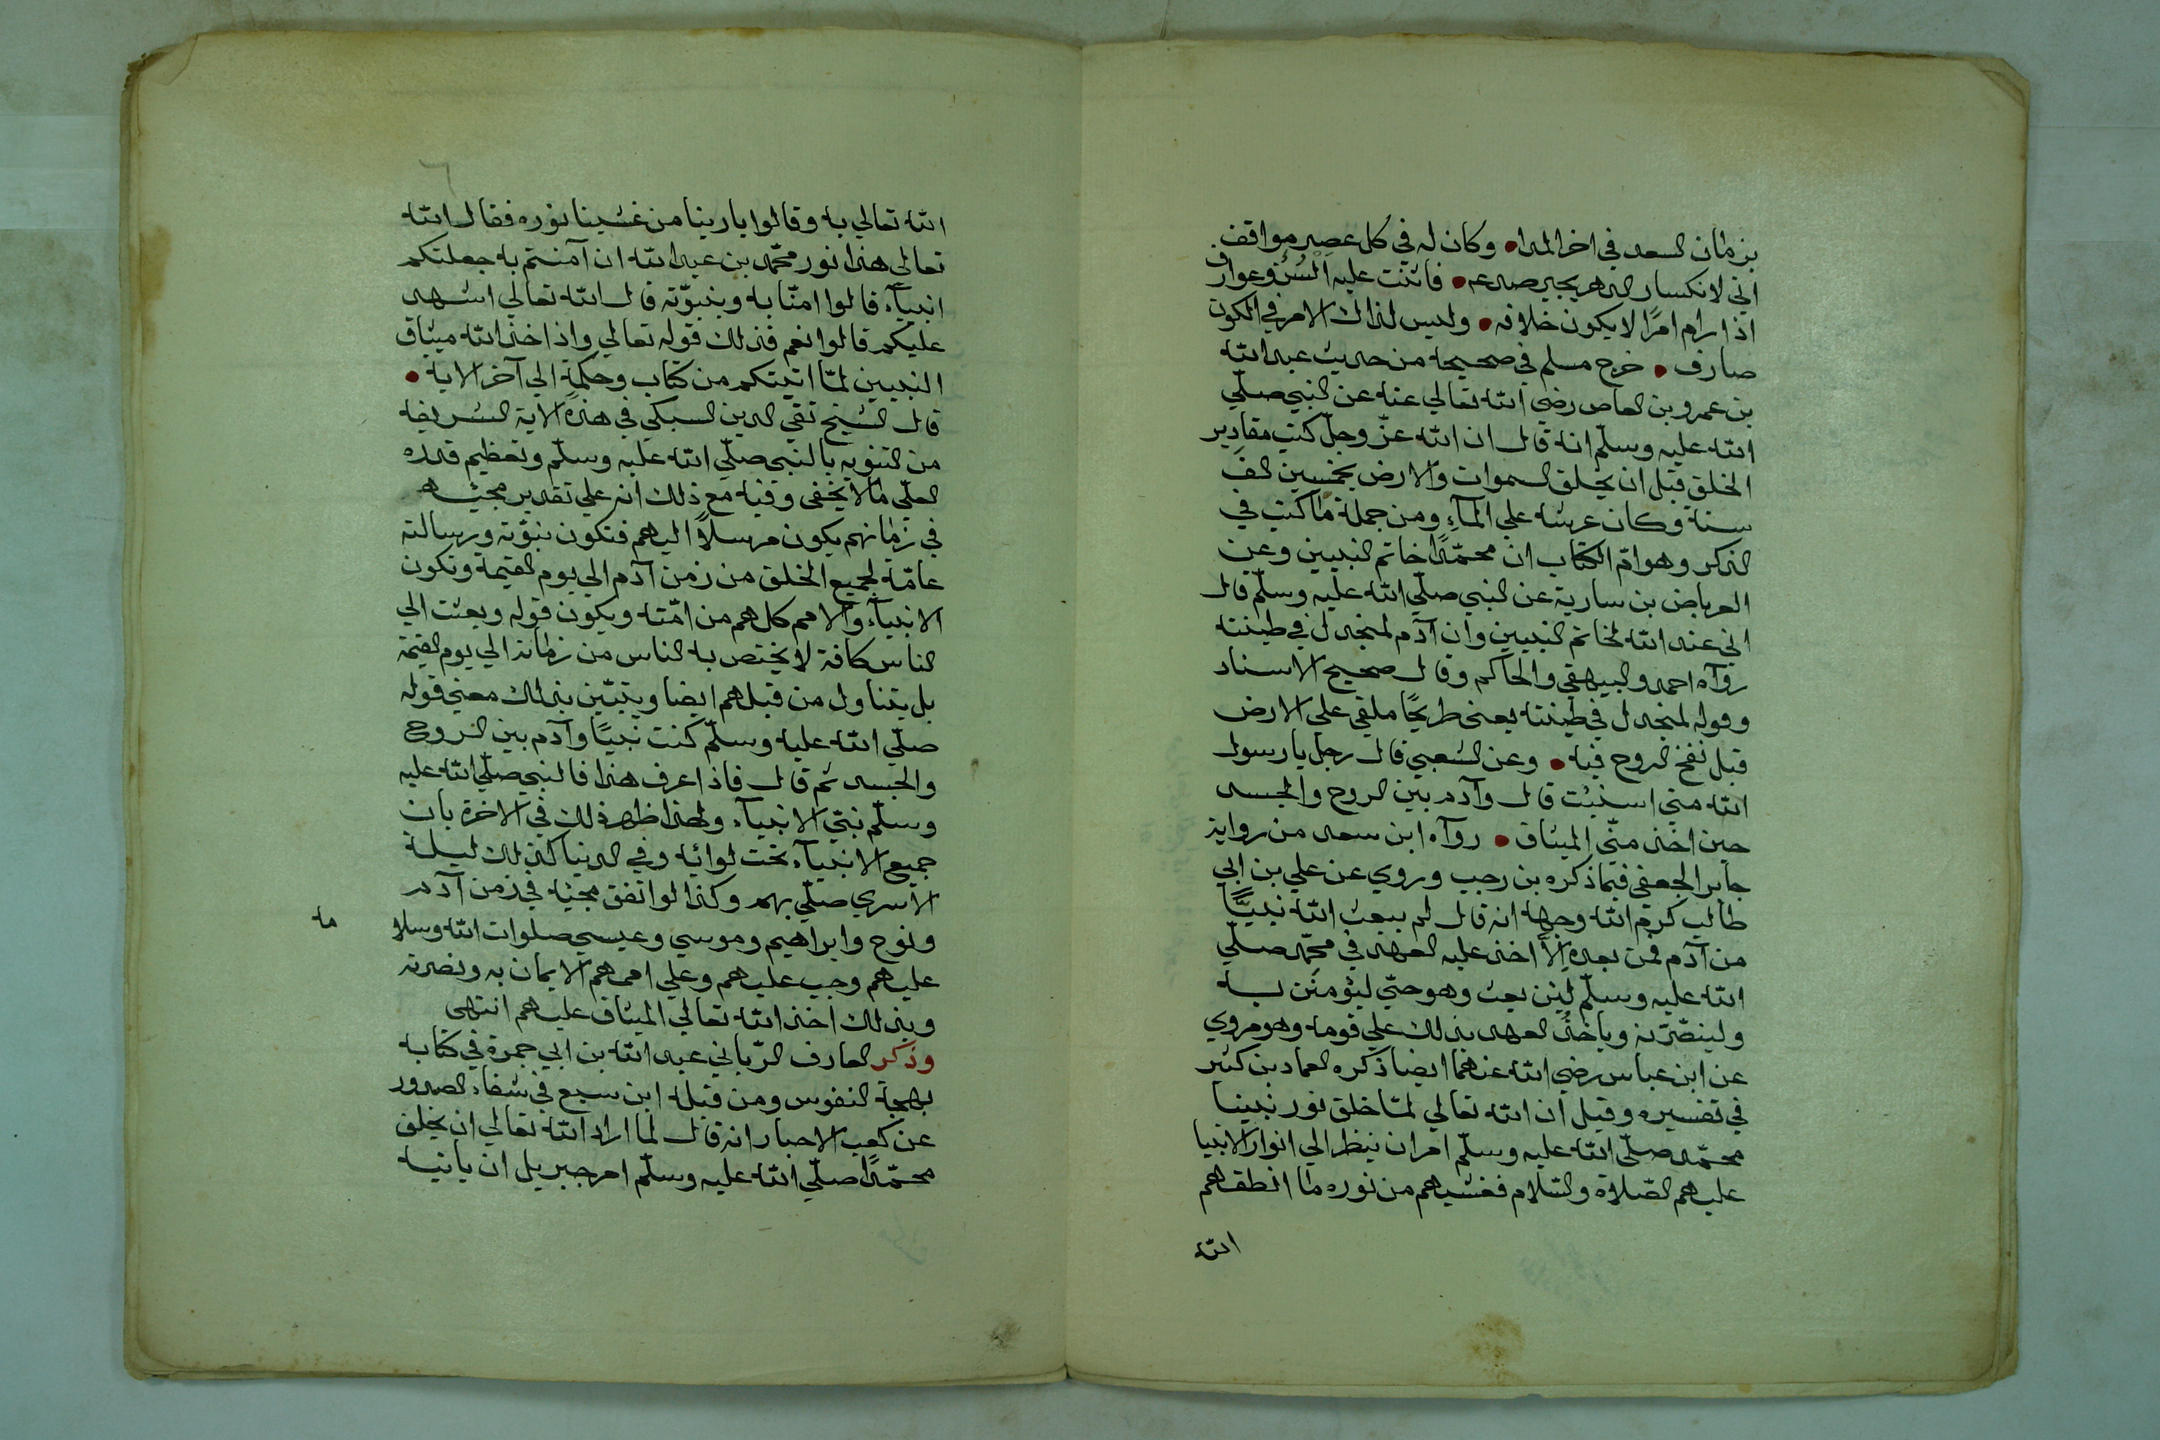 بزمان السعد في اخر المدا • وكان له في كل عصر مواقف
اتي لانكسار الدهر يجبر صدعه • فاثنت عليه السن وعوارف
اذا رام امرًا لا يكون خلافه • وليس لذاك الامر في الكون
صارف • خرج مسلم في صحيحه من حديث عبد الله
بن عمرو بن العاص رضي الله تعالي عنه عن النبي صلّي
الله عليه وسلّم انه قال ان الله عزّ وجلّ كتب مقادير
الخلق قبل ان يخلق السموات والارض بخمسين الف
سنة وكان عرشه علي المآء ومن جملة ما كتب في
الذكر وهو امّ الكتاب ان محمّدًا خاتم النبيين وعن
العرباض بن سارية عن النبي صلّي الله عليه وسلّم قال
اني عند الله لخاتم النبيين وان آدم لمنجدل في طينته
روآه احمد والبيهقي والحاكم وقال صحيح الاسناد
وقوله لمنجدل في طينته يعني طريحًا ملقي علي الارض
قبل نفخ الروح فيه • وعن الشعبي قال رجل يا رسول
الله متي استنبئت قال وآدم بين الروح والجسد
حين اخذ منّي الميثاق • روآه ابن سعد من رواية
جابر الجعفي فيما ذكره بن رجب وروي عن علي بن ابي
طالب كرّم الله وجهه انه قال لم يبعث الله نبيًّا
من آدم فمن بعده الّا اخذ عليه العهد في محمّد صلّي
الله عليه وسلّم لئن بعث وهو حيّ ليؤمنن به
ولينصرّنه وياخذ العهد بذلك علي قومه وهو مروي
عن ابن عباس رضي الله عنهما ايضا ذكره العماد بن كثير
في تفسيره وقيل ان الله تعالي لمّا خلق نور نبينا
محمّد صلّي الله عليه وسلّم امر ان ينظر الي انوار الانبيا
عليهم الصّلاة والسّلام فغشيهم من نوره ما انطقهم
الله
٦
الله تعالي به وقالوا يا ربنا من غشينا نوره فقال الله
تعالي هذا نور محمّد بن عبد الله ان آمنتم به جعلتكم
انبيآء قالوا امنّا به وبنبوّته قال الله تعالي اشهد
عليكم قالوا نعم فذلك قوله تعالي واذ اخذ الله ميثاق
النبيين لمّا اتيتكم من كتاب وحكمة الي آخر الاية •
قال الشيخ تقي الدين السبكي في هذه الاية الشريفه
من التنويه بالنبي صلّي الله عليه وسلّم وتعظيم قدره
العلّي ما لا يخفي وفيه مع ذلك انه علي تقدير مجيئه
في زمانهم يكون مرسلاً اليهم فتكون نبوّته ورسالته
عامّة لجميع الخلق من زمن آدم الي يوم القيمة وتكون
الانبيآء والامم كلهم من امّته ويكون قوله وبعثت الي
الناس كافة لا يختص به الناس من زمانه الي يوم القيمة
بل يتناول من قبلهم ايضا ويتبيّن بذلك معني قوله
صلّي الله عليه وسلّم كنت نبيًا وآدم بين الروح
والجسد ثم قال فاذا عرف هذا فالنبي صلّي الله عليه
وسلّم نبّي الانبيآء ولهذا ظهر ذلك في الاخرة بان
جميع الانبيآء تحت لوائه وفي الدنيا كذلك ليلة
الاسري صلّي بهم وكذا لو اتفق مجيئه في زمن آدم
ونوح وابراهيم وموسي وعيسي صلوات الله وسلا
مه
عليهم وجب عليهم وعلي اممهم الايمان به ونصرته
وبذلك اخذ الله تعالي الميثاق عليهم انتهى
وذكر العارف الرّباني عبد الله بن ابي جمرة في كتابه
بهجة النفوس ومن قبله ابن سبع في شفاء الصدور
عن كعب الاحبار انه قال لما اراد الله تعالي ان يخلق
محمّدًا صلّي الله عليه وسلّم امر جبريل ان ياتيه